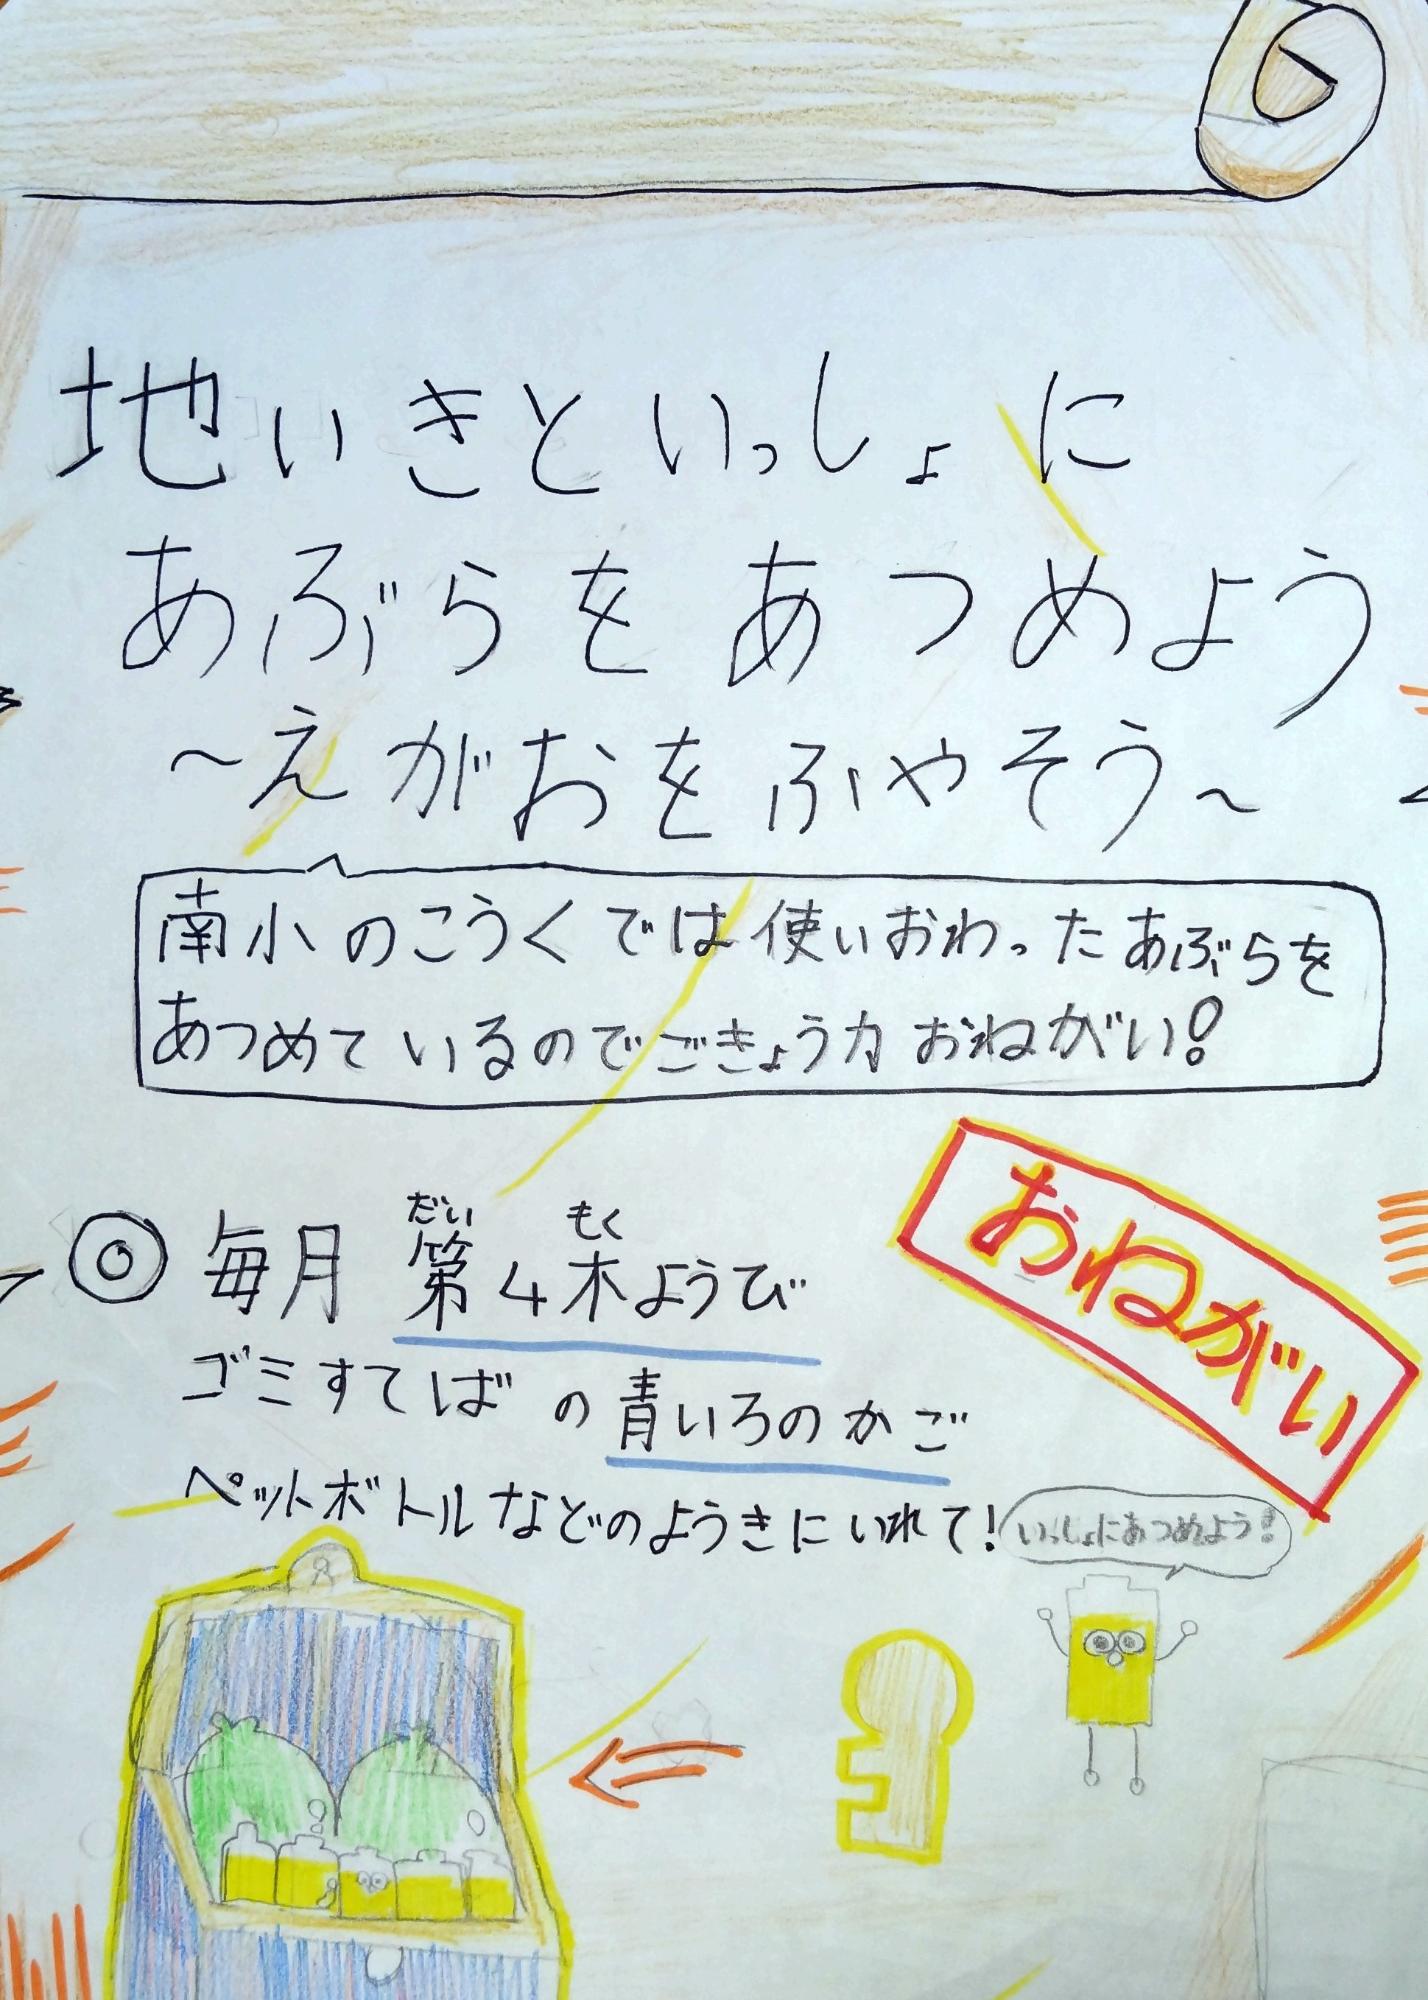 地いきといっしょに
あぶらをあつめよう
～えがおをふやそう～
南小のこうくでは使いおわったあぶらを
あつめているのでごきょう力おねがい!
おねがい
だい もく
◎毎月 第4木ようび
ゴミすてばの青いろのかご
ペットボトルなどのようきにいれて!
いっしょにあつめよう!